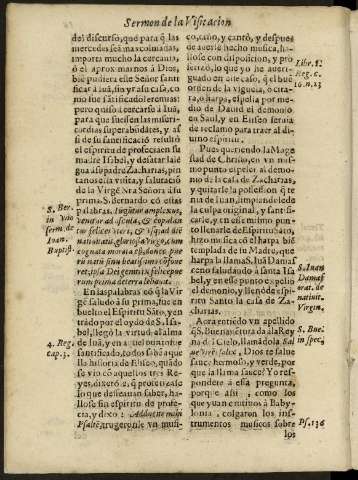 Sermon de la Visitacion
del discurso, que para q̃ las
mercedes seã mas colmadas,
importa mucho la cercania,
ò el aproximarnos à Dios,
biẽ pudiera este Señor santi
ficar a Iuã, sin yr a su casa, co
mo fue sãtificado Ieremias:
pero quiso ir cercarse à Iuã,
para que fuessen las miseri-
cordias superabũdãtes, y as
si de su santificaciõ resultò
el espiritu de profecia en su
madre Isabel, y desatar la lẽ
gua à su padre Zacharias, pin
tanos esta visita, y salutaciõ
de la Virgẽ Nra Señora à su
prima S. Bernardo cõ estas
palabras. Iugũtur amplexus,
S. Ber-
in vno
serm. de
Ioan.
Baptist.
rom prima de terra abituri.
En las palabras cõ q̃ la Vir
gẽ saludò à su prima, fue en
buelto el Espiritu Sãto, y en
trado por el oydo de S. Isa
bel, llegò la virtud al alma
4. Reg.
cap. 3.
de Iuã, y en aquel pũto fue
santificado, todos sabẽ aque
lla historia de Eliseo, quãdo
se viò cõ aquellos tres Re
yes, dixerõle, q̃ profetizasse
lo que desseauan saber, ha-
llose sin espiritu de profe-
cia, y dixo: Adducite mihi
Psaltẽ, trugeronle vn musi-
co, tañò, y cantò, y despues
de auerle hecho musica, ha-
llose con disposicion, y pro
fetizò, lo que yo he aueri-
guado en este caso, es, q̃ el buẽ
orden de la viguela, ò cita-
ra, ò harpa, espelia por me-
dio de Dauid el demonio
en Saul, y en Eliseo seruia
de reclamo para traer al di-
uino espiritu.
Libr. 1.
Reg. c.
16. n. 23
Pues queriendo la Mage
stad de Christo, en vn mis-
mo punto espeler al demo-
nio de la casa de Zacharias,
y quitarle la possession q̃ te
nia de Iuan, limpiandole de
la culpa original, y santifi-
carle, y en esse mismo pun-
to llenarle de Espiritu Sãto,
hizo musica cõ el harpa biẽ
templada de su Madre, que
harpa la llama S. Iuã Damas
ceno saludando à santa Isa
bel, y en esto espeliò al de-
monio, y llenò de espi-
ritu Santo la casa de Za-
charias.
S. Iuan
Damas
orat. de
natiuit.
Virgin.
Aora entẽdo vn apellido
q̃ S. Buenauẽtura da à la Rey
na del Cielo, llamãdola Sal
ue Dei salix, Dios te salue
sauce hermoso, y verde, por
que la llama sauce? Yo res-
pondere à essa pregunta,
porque assi, como los
que yuan catiuos à Baby-
lonia, colgaron los ins-
trumentos musicos sobre
los
S. Bue.
in spec.
Ps. 136